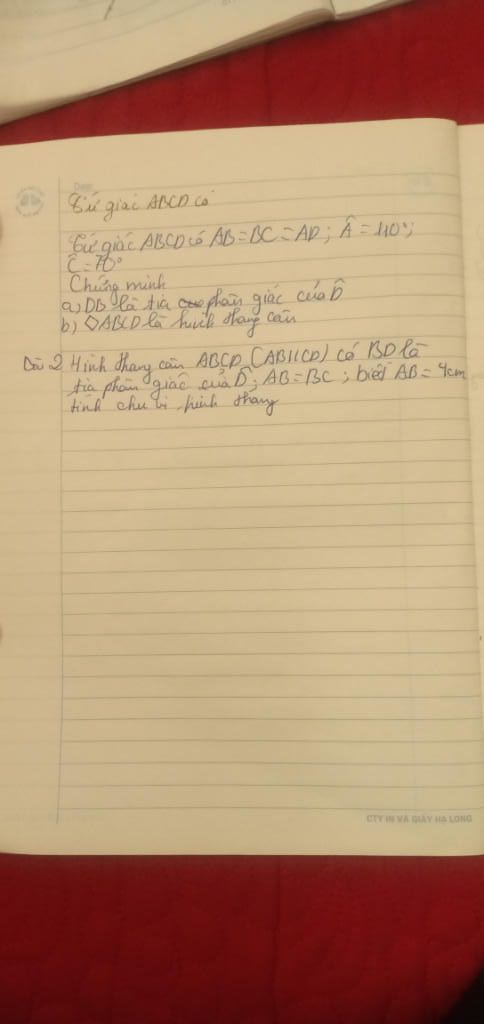 Tứ giác ABCD có
Tứ giác ABCD có AB = BC = AD ; Â = 110°;
Ĉ = 70°
Chứng minh
a) DB là tia phân giác của D̂
b) ◇ABCD là hình thang cân
Bài 2 Hình thang cân ABCD (AB//CD) có BD là
tia phân giác của D̂ ; AB = BC ; biết AB = 4cm
tính chu vi hình thang
CTY IN VÀ GIẤY HẠ LONG